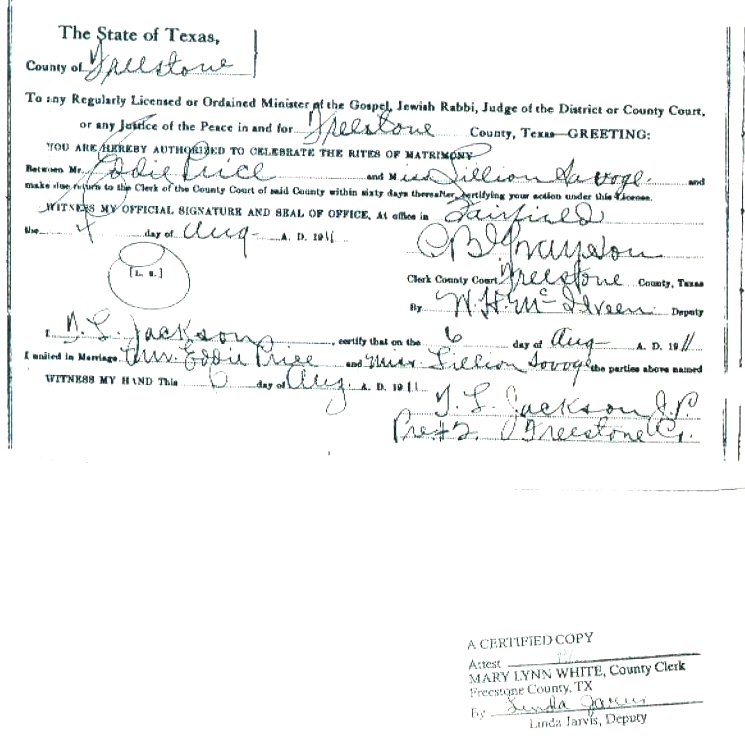 The State of Texas,
County of Freestone
To any Regularly Licensed or Ordained Minister of the Gospel, Jewish Rabbi, Judge of the District or County Court,
or any Justice of the Peace in and for Freestone County, Texas—GREETING:
YOU ARE HEREBY AUTHORIZED TO CELEBRATE THE RITES OF MATRIMONY
Between Mr. Eddie Price and Miss Lillion Savoge and
make due return to the Clerk of the County Court of said County within sixty days thereafter, certifying your action under this License.
WITNESS MY OFFICIAL SIGNATURE AND SEAL OF OFFICE, At office in Fairfield
the 4 day of Aug A. D. 1911
O B Grayson
[L. S.]
Clerk County Court Freestone County, Texas
By W. H. Deputy
I T. L. Jackson, certify that on the 6 day of Aug A. D. 1911
I united in Marriage Mr. Eddie Price and Miss Lillion Savoge the parties above named
WITNESS MY HAND This 6 day of Aug. A. D. 1911
T. L. Jackson J. P.
Pre # 2. Freestone Co.
A CERTIFIED COPY
Attest
MARY LYNN WHITE, County Clerk
Freestone County, TX
By Linda Jarvis
Linda Jarvis, Deputy